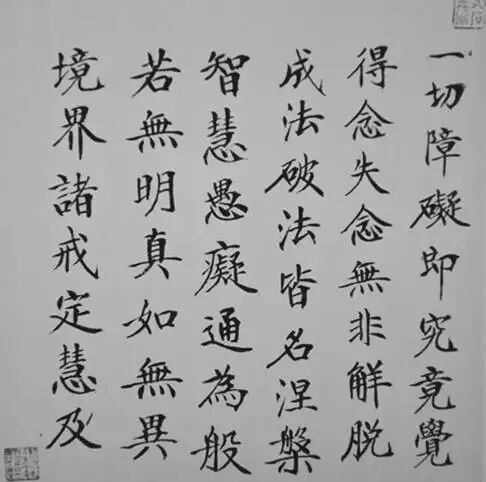 一切障礙即究竟覺
得念失念無非解脱
成法破法皆名涅槃
智慧愚癡通為般
若無明真如無異
境界諸戒定慧及